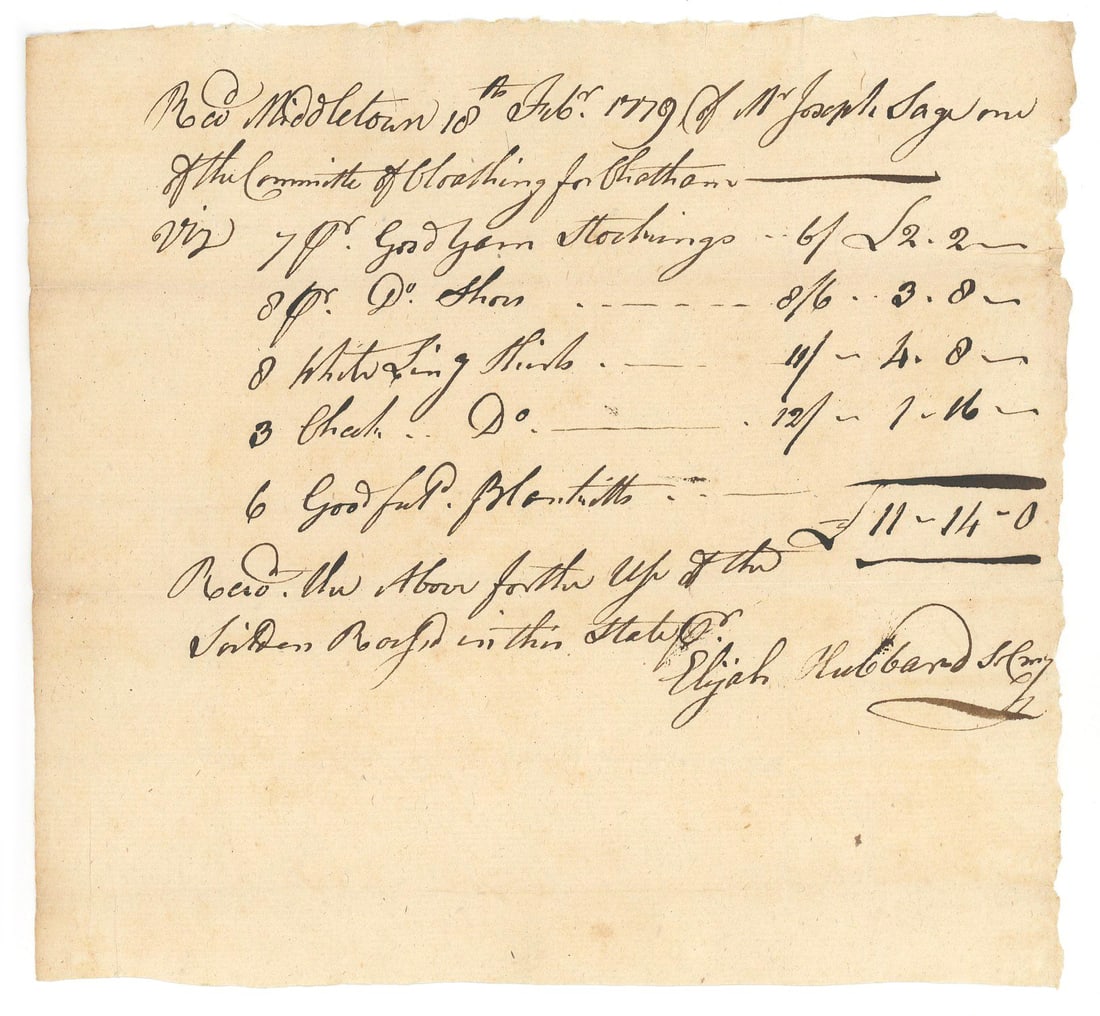 Recd Middletown 18th Febr. 1779 of Mr Joseph Sage one
of the Committe of Cloathing for Chatham
Viz 7 Pr. Good Yarn Stockings - 6/ £2. 2 -
8 Pr. Do. Shoes - 8/6 - 3. 8 -
8 White Ling Shirts - 11/ - 4. 8 -
3 Check .. Do. - 12/ - 1 - 16 -
6 Good full'd. Blankitts -
£ 11 - 14 - 0
Recd. the Above for the Use of the
Soilders Raisd in this State Pr.
Elijah Hubbard